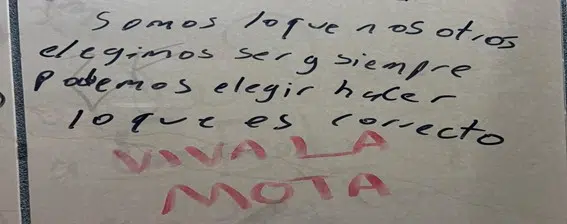 Somos loque nosotros
elegimos ser y siempre
Podemos elegir hacer
lo que es correcto
VIVA LA
MOTA